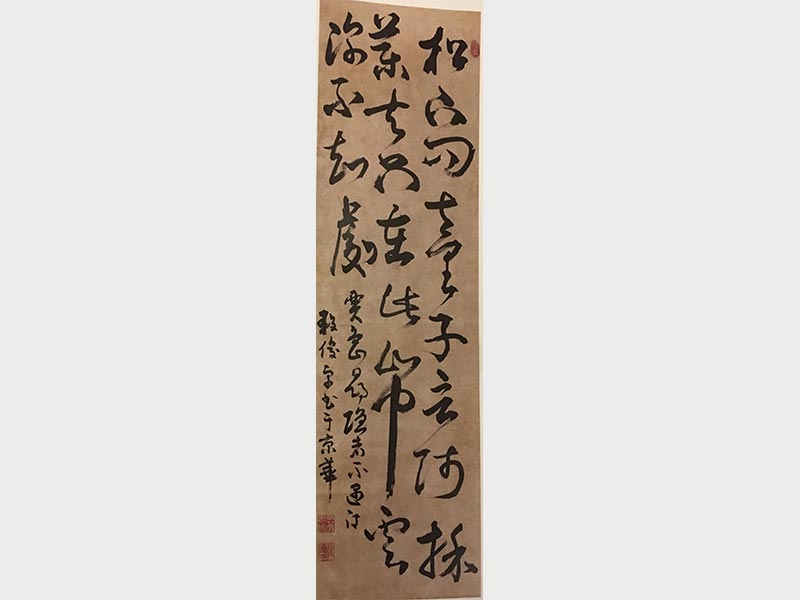 松下問童子言師採
藥去只在此山中雲
深不知處
賈島尋隱者不遇詩
俊 书于京華